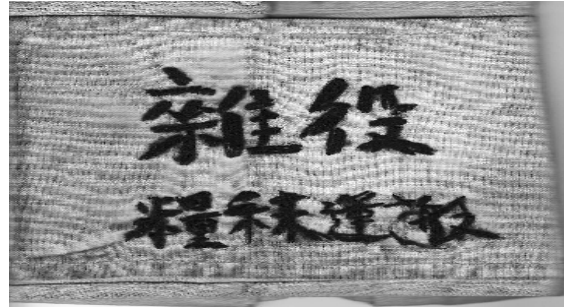 雜役
糧秣運搬